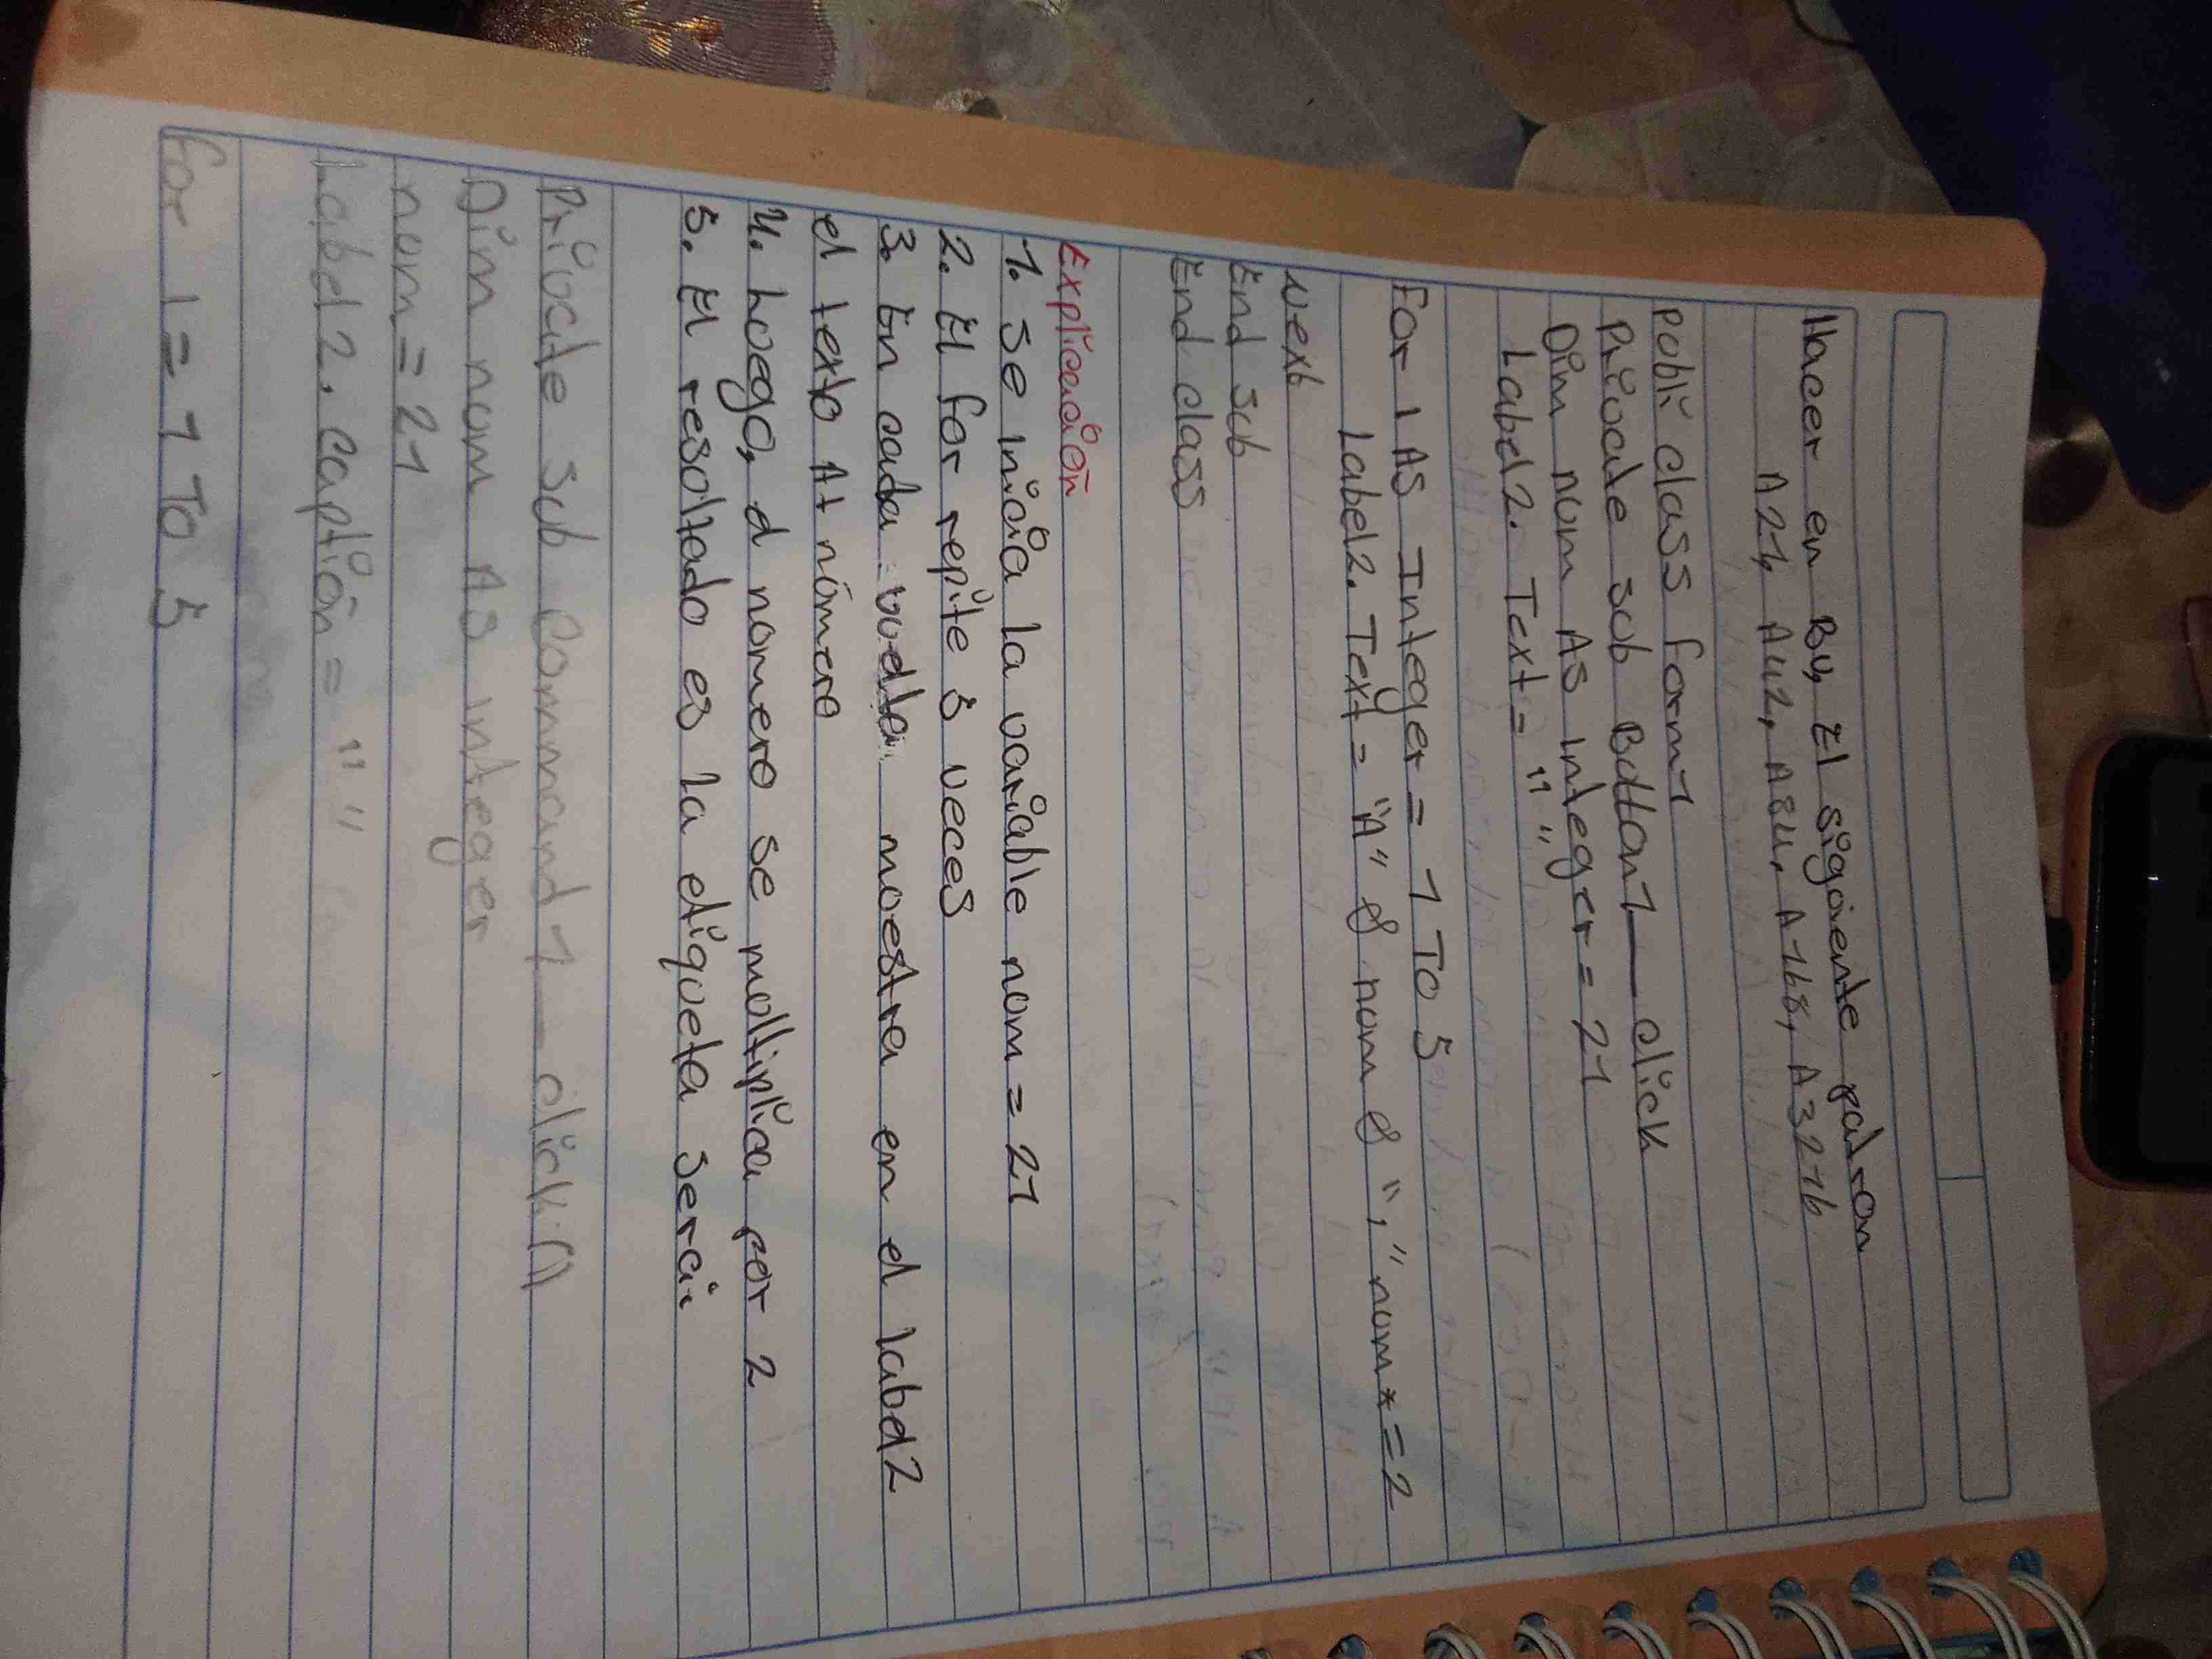 Hacer en By, El sigoiente patron
A21, A42, A84, A168, A3216
Publi class form1
Privade sub Botton1_click
Dim nom As Integer = 21
Label2. Text = " "
For I As Integer = 1 To 5
Label2. Text = "A" & nom & "," nom * = 2
Next
End sub
End class
Explicación
1. Se inicia la variable nom = 21
2. El for repite 5 veces
3. En cada vuelta muestra en el label2
el texto A+ número
4. Luego, el nomero se moltiplica por 2
5. El resoltado es la etiqueta será:
Privade sub Command1_click()
Dim nom As integer
nom = 21
Label2. caption = " "
for I = 1 To 5